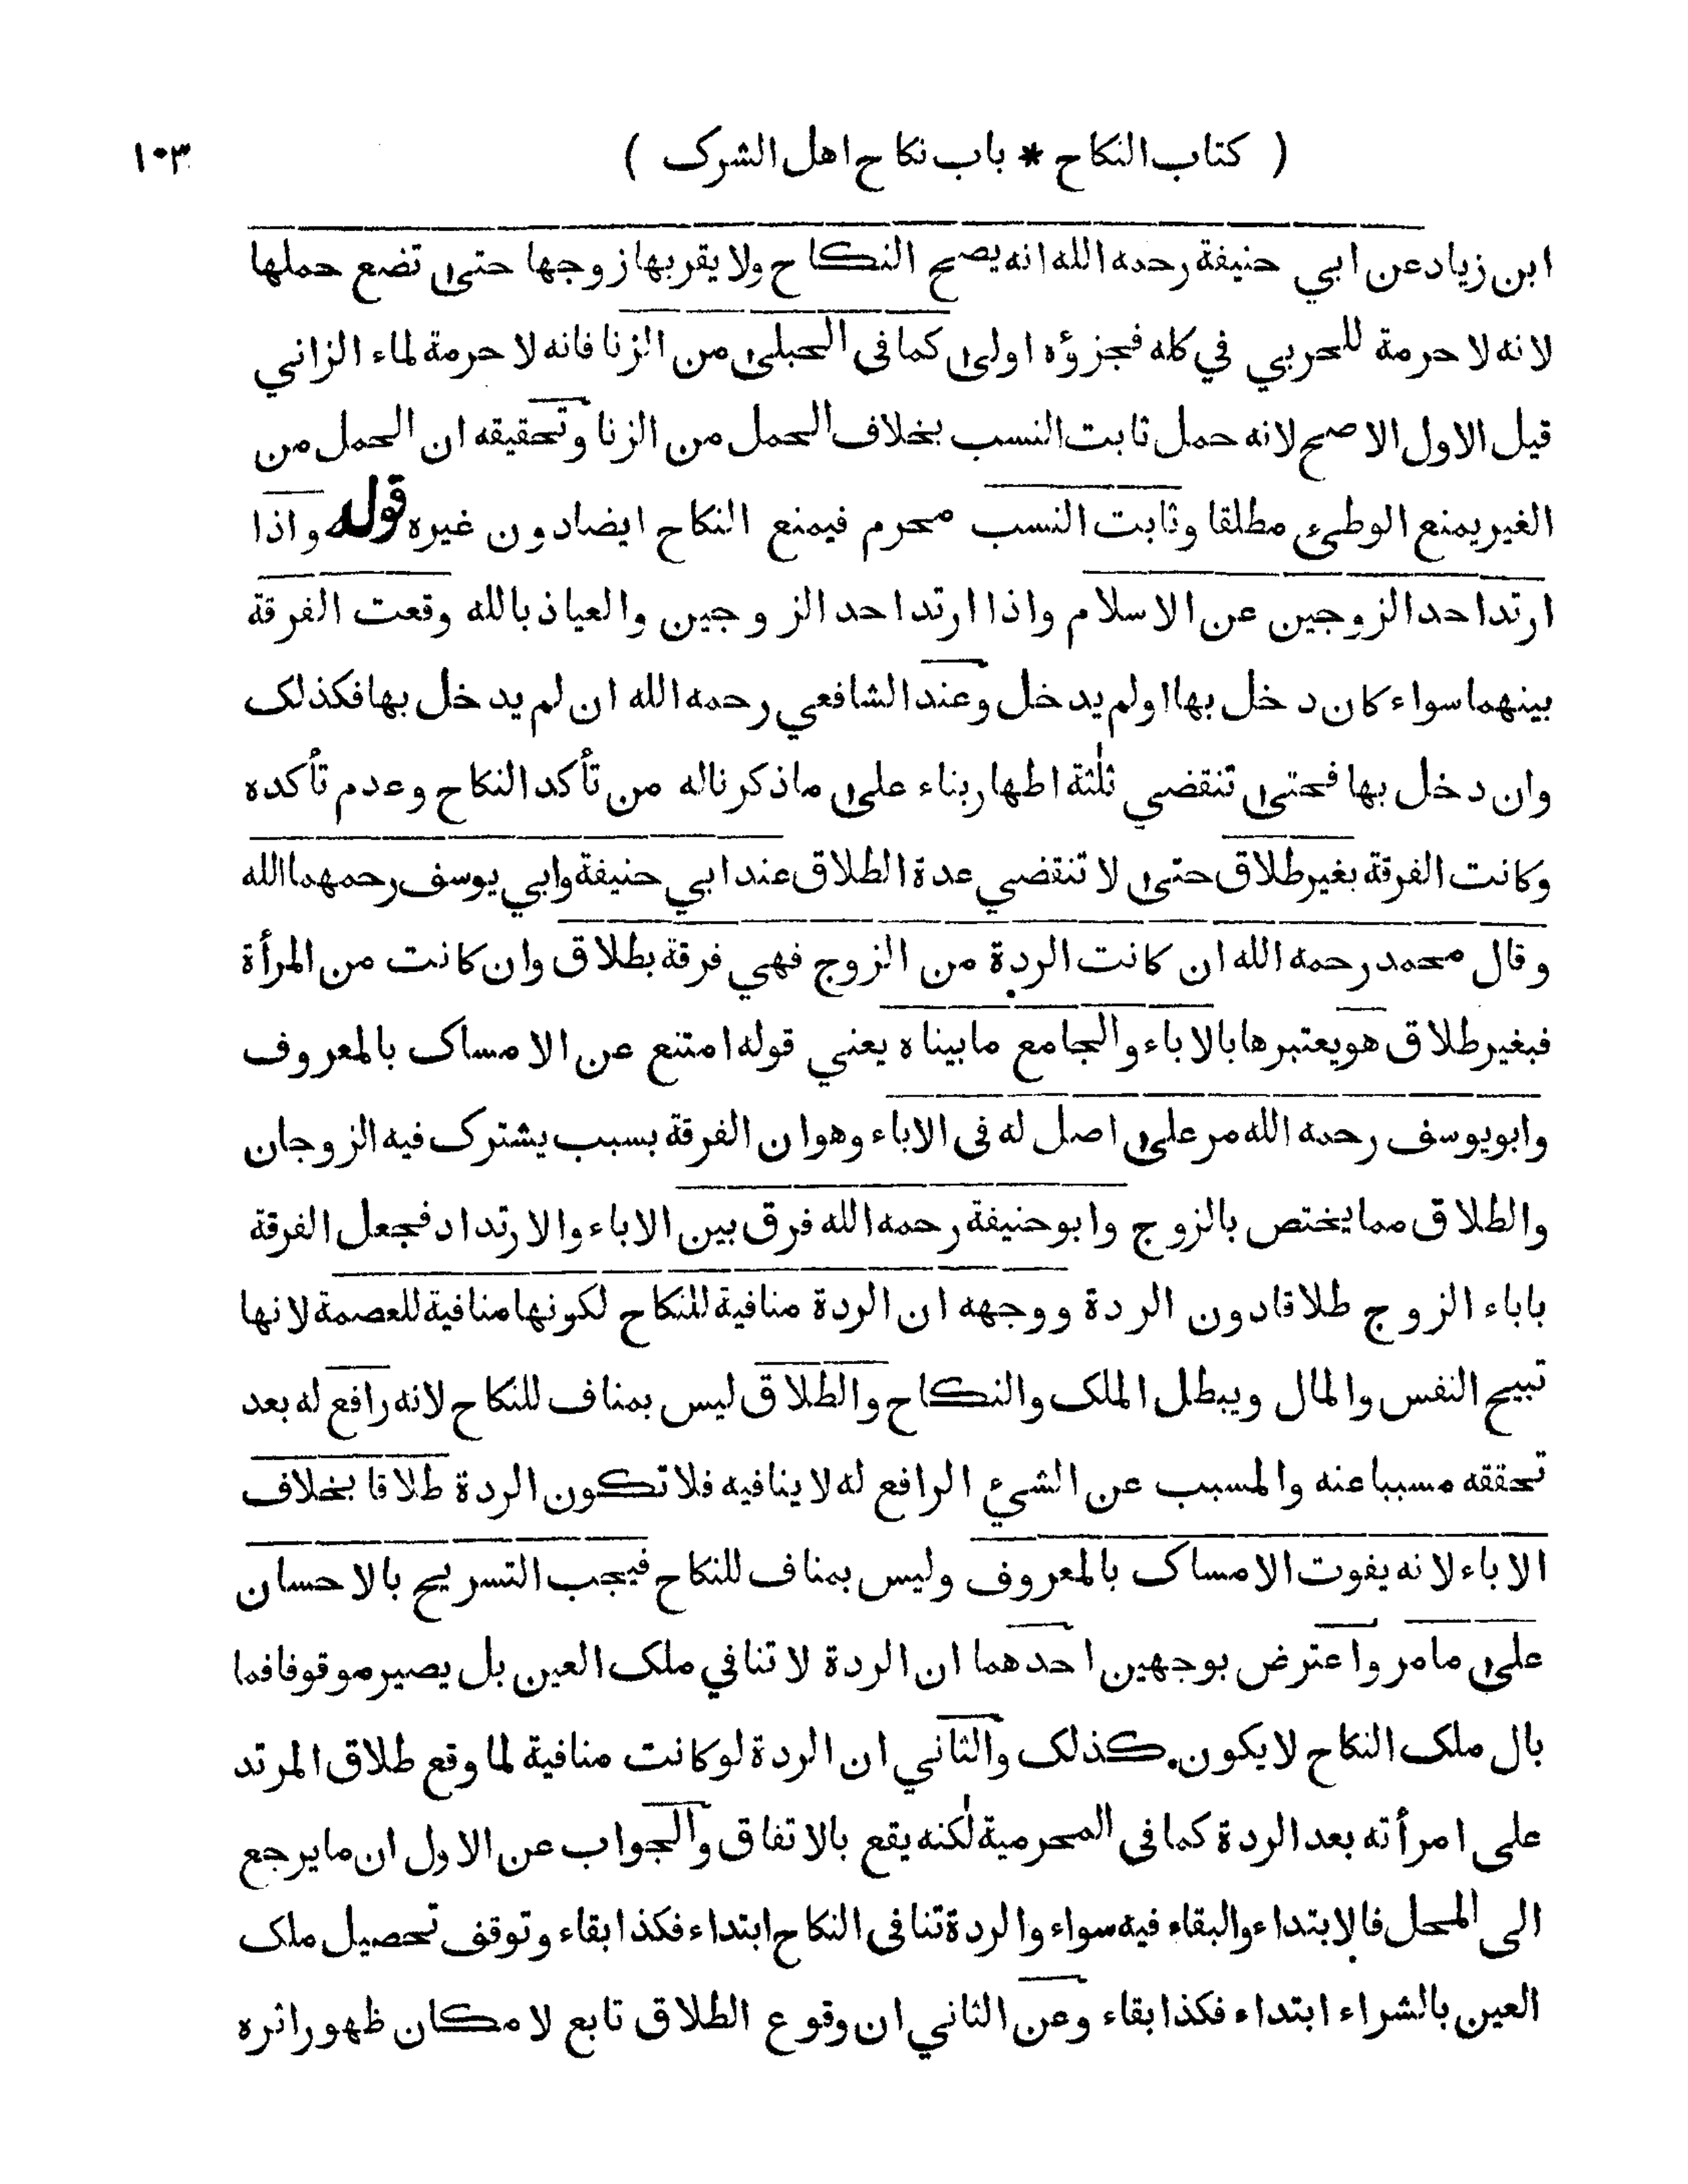 ( كتاب النكاح * باب نكاح اهل الشرک ) ١٠٣
ابن زياد عن ابي حنيفة رحمه الله انه يصح النكاح ولا يقربها زوجها حتى تضع حملها
لانه لا حرمة للحربي في كله فجزؤه اولى كما فى الحبلى من الزنا فانه لا حرمة لماء الزاني
قيل الاول الاصح لانه حمل ثابت النسب بخلاف الحمل من الزنا وتحقيقه ان الحمل من
الغير يمنع الوطىء مطلقا وثابت النسب محرم فيمنع النكاح ايضا دون غيره قوله واذا
ارتد احد الزوجين عن الاسلام واذا ارتد احد الزوجين والعياذ بالله وقعت الفرقة
بينهما سواء كان دخل بها اولم يدخل وعند الشافعي رحمه الله ان لم يدخل بها فكذلک
وان دخل بها فحتى تنقضي ثلٰثة اطهار بناء على ماذكرناله من تأكد النكاح وعدم تأكده
وكانت الفرقة بغير طلاق حتى لا تنقضي عدة الطلاق عند ابي حنيفة وابي يوسف رحمهما الله
وقال محمد رحمه الله ان كانت الردة من الزوج فهي فرقة بطلاق وان كانت من المرأة
فبغير طلاق هو يعتبرها بالاباء والجامع مابيناه يعني قوله امتنع عن الامساک بالمعروف
وابويوسف رحمه الله مر على اصل له فى الاباء وهوان الفرقة بسبب يشترک فيه الزوجان
والطلاق مما يختص بالزوج وابو حنيفة رحمه الله فرق بين الاباء والارتداد فجعل الفرقة
باباء الزوج طلاقا دون الردة ووجهه ان الردة منافية للنكاح لكونها منافية للعصمة لانها
تبيح النفس والمال ويبطل الملک والنكاح والطلاق ليس بمناف للنكاح لانه رافع له بعد
تحققه مسببا عنه والمسبب عن الشيء الرافع له لا ينافيه فلا تكون الردة طلاقا بخلاف
الاباء لانه يفوت الامساک بالمعروف وليس بمناف للنكاح فيجب التسريح بالاحسان
على مامر واعترض بوجهين احدهما ان الردة لا تنافي ملک العين بل يصير موقوفا فما
بال ملک النكاح لا يكون كذلک والثاني ان الردة لوكانت منافية لما وقع طلاق المرتد
على امرأته بعد الردة كما فى المحرمية لٰكنه يقع بالاتفاق والجواب عن الاول ان ما يرجع
الى المحل فالابتداء والبقاء فيه سواء والردة تنافى النكاح ابتداء فكذا بقاء وتوقف تحصيل ملک
العين بالشراء ابتداء فكذا بقاء وعن الثاني ان وقوع الطلاق تابع لامكان ظهور اثره